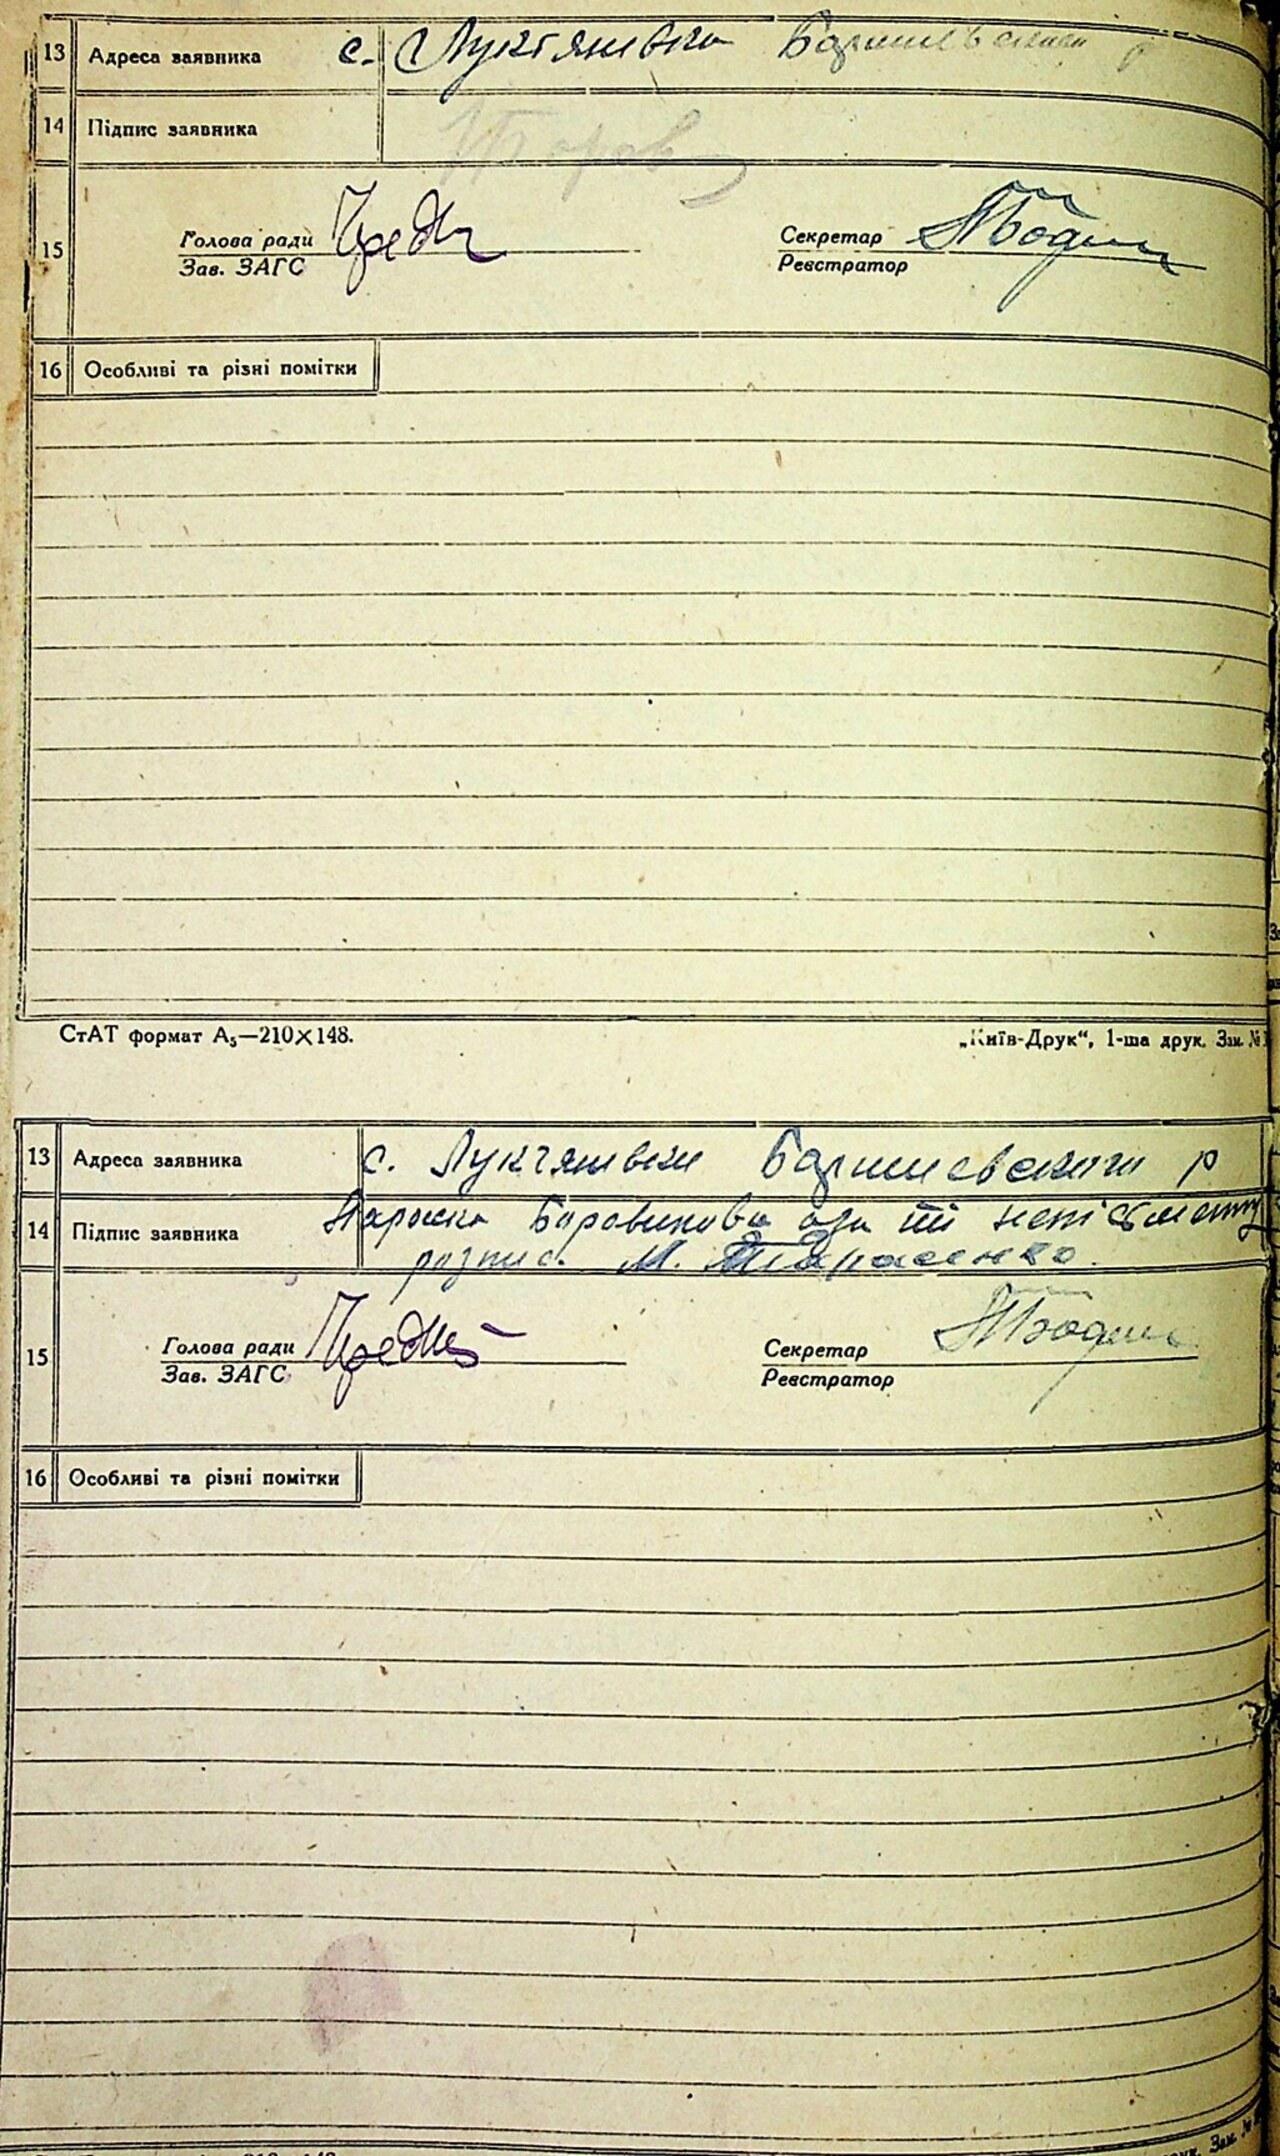 13 Адреса заявника с. Лук'янівка
14 Підпис заявника
15 Голова ради Секретар
Зав. ЗАГС Реєстратор
16 Особливі та різні помітки
СтАТ формат А₅—210×148. „Київ-Друк“, 1-ша друк. Зам. №
13 Адреса заявника с. Лук'янівки Баришевского р
14 Підпис заявника Параска Боровикова а за її неписьменну
розпис. М. Тарасенко.
15 Голова ради Секретар
Зав. ЗАГС Реєстратор
16 Особливі та різні помітки
Зам. №